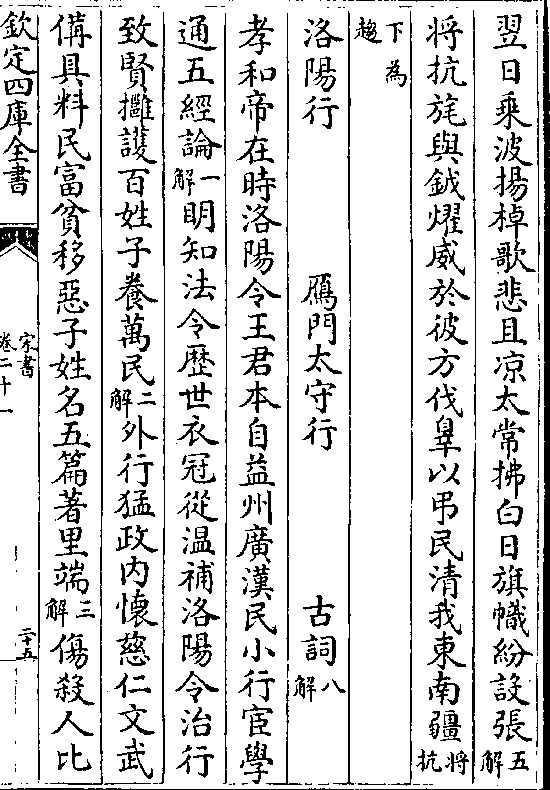 翌日乗波揚棹歌悲且凉太常拂白日旗幟紛設張五解
将抗旄與鉞燿威於彼方伐辠以弔民清我東南疆将抗
下為趨
洛陽行 鴈門太守行 古詞八解
孝和帝在時洛陽令王君本自益州廣漢民小行宦學
通五經論一解明知法令歴世衣冠從温補洛陽令治行
致賢擁護百姓子養萬民二解外行猛政内懷慈仁文武
備具料民富貧移惡子姓名五篇著里端三解傷殺人比
欽定四庫全書
宋書
卷二十一
二十五